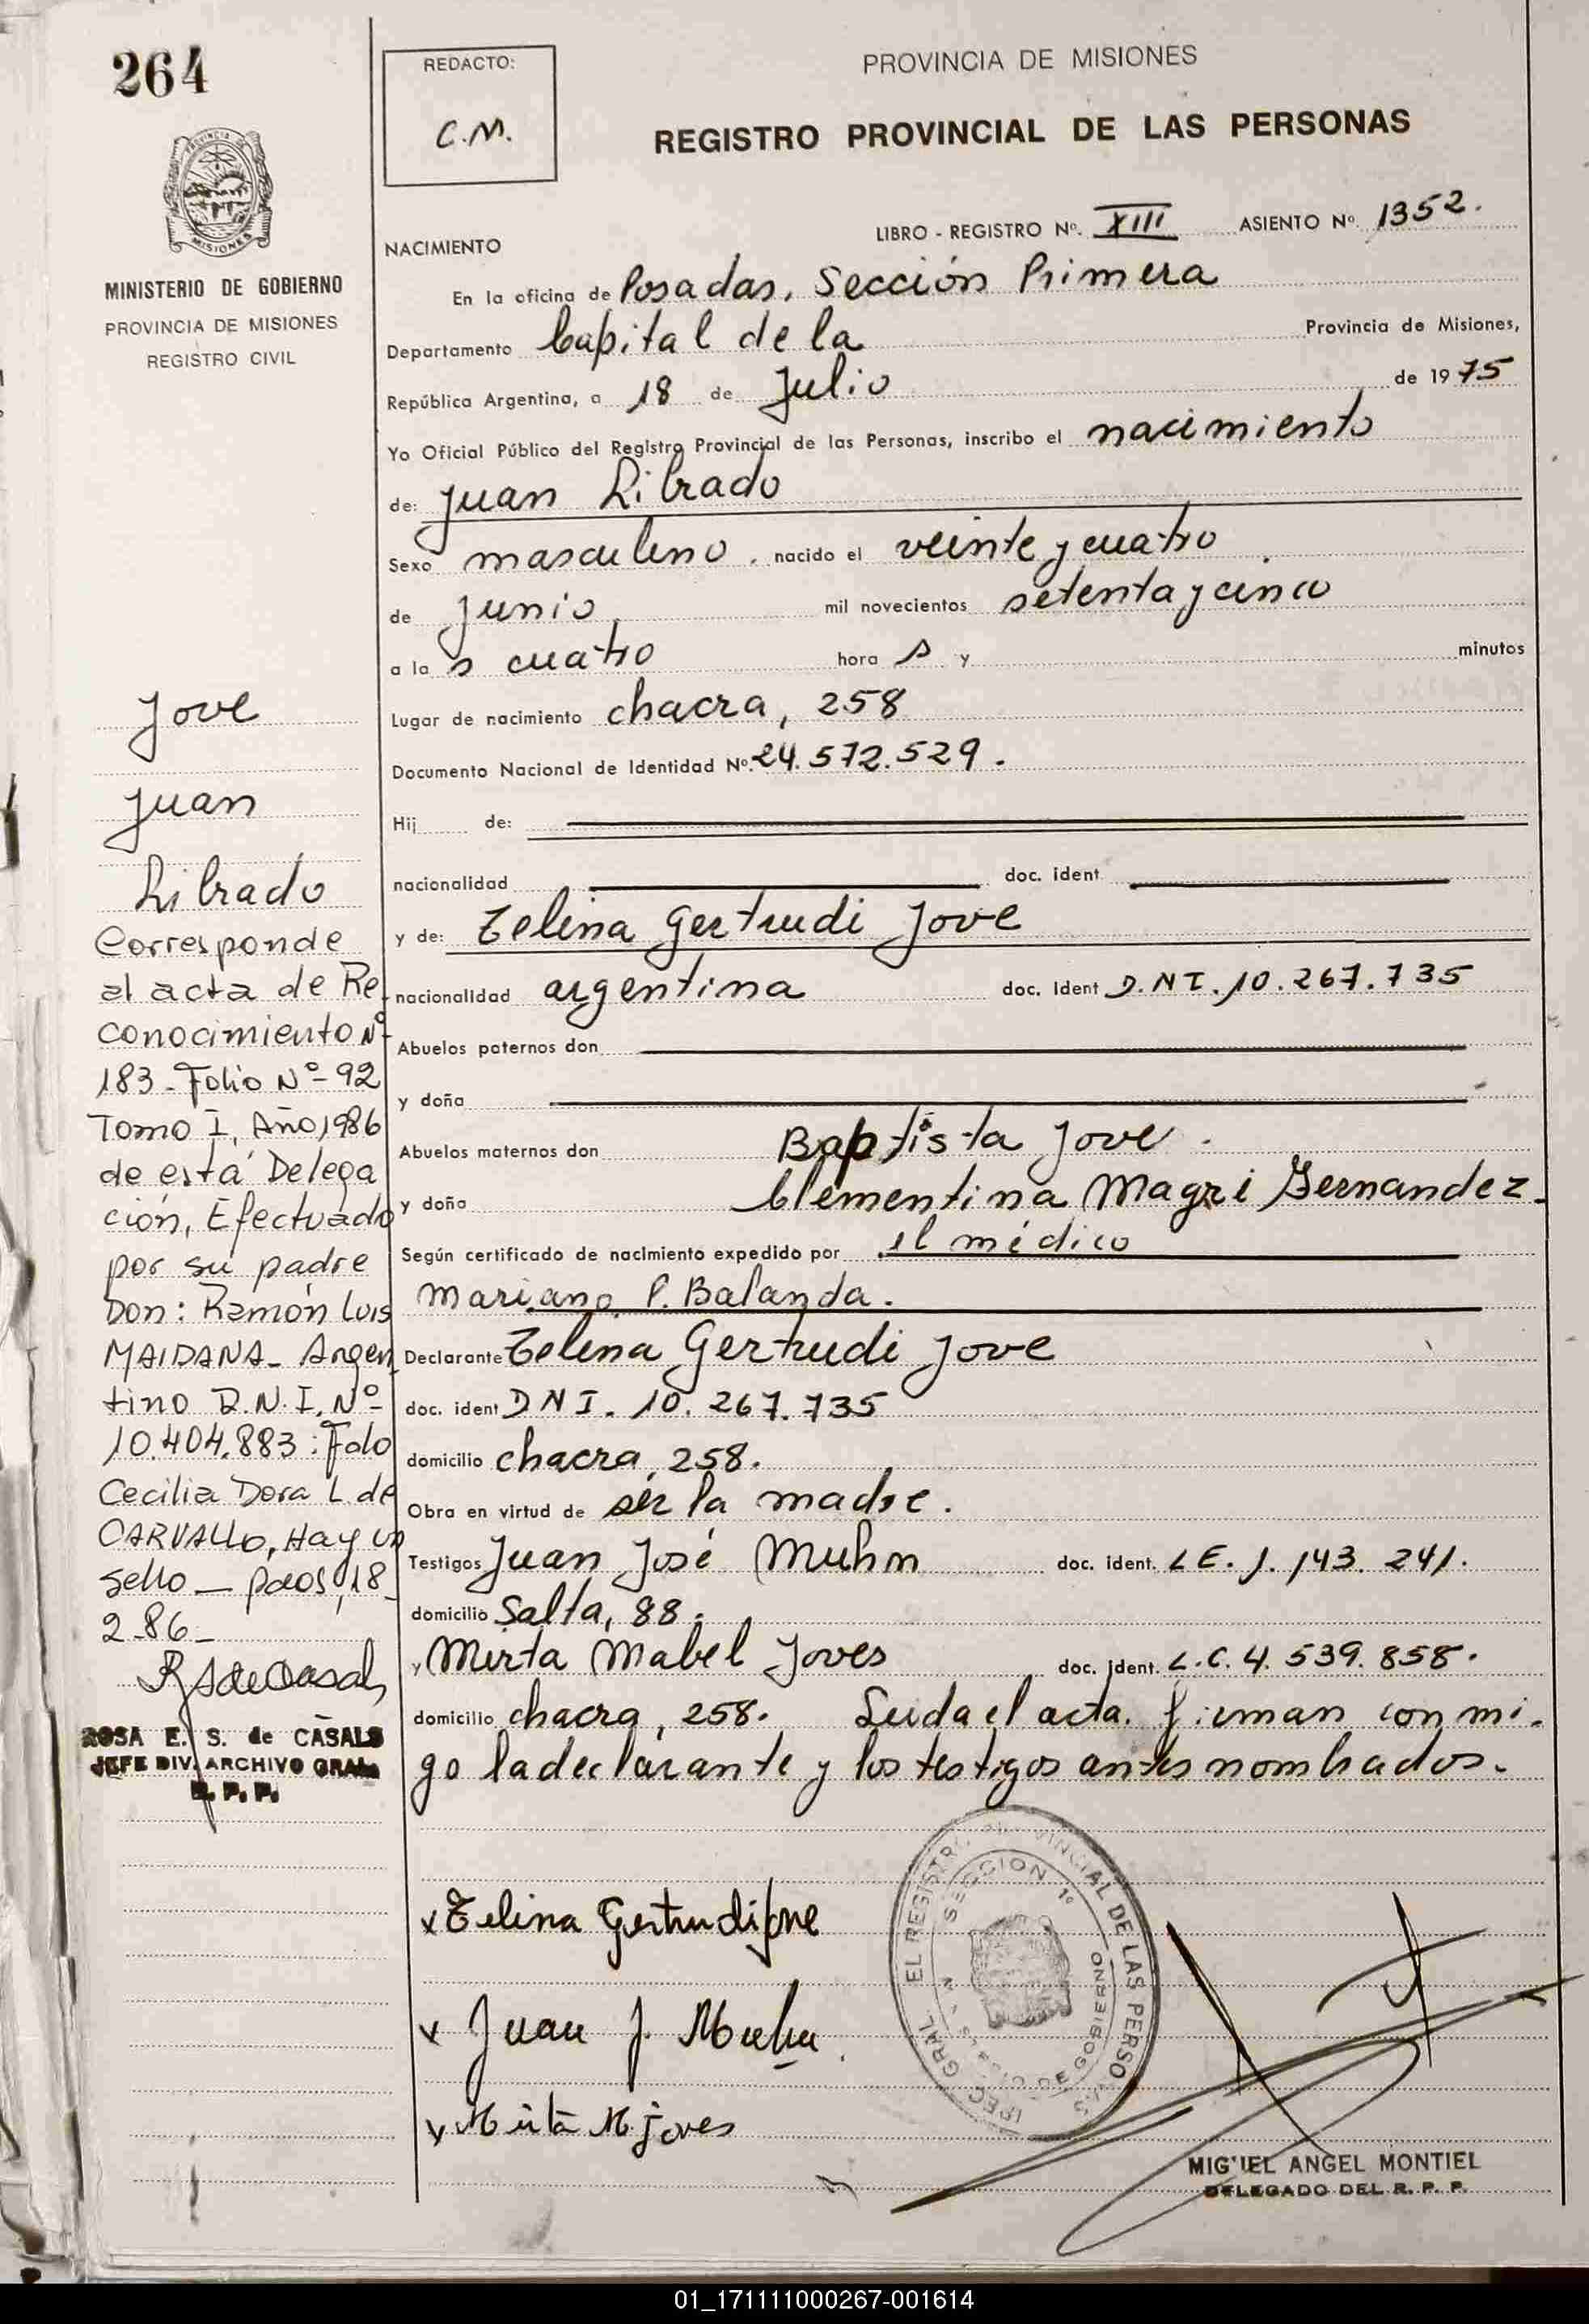 264
REDACTO:
C.M.
PROVINCIA DE MISIONES
REGISTRO PROVINCIAL DE LAS PERSONAS
MISIONES
MINISTERIO DE GOBIERNO
PROVINCIA DE MISIONES
REGISTRO CIVIL
LIBRO - REGISTRO Nº. XIII ASIENTO Nº. 1352.
NACIMIENTO
En la oficina de Posadas, Sección Primera
Departamento Capital de la Provincia de Misiones,
República Argentina, a 18 de Julio de 1975
Yo Oficial Público del Registro Provincial de las Personas, inscribo el nacimiento
de: Juan Librado
Sexo masculino. nacido el veinte y cuatro
de Junio mil novecientos setenta y cinco
a la s cuatro hora s y minutos
Lugar de nacimiento chacra, 258
Documento Nacional de Identidad Nº. 24.572.529.
Hij de:
nacionalidad doc. ident.
y de: Zelina Gertrudi Jove
nacionalidad argentina doc. Ident D.N I. 10.267.735
Abuelos paternos don
y doña
Abuelos maternos don Baptista Jove.
y doña Clementina Magri Fernandez.
Según certificado de nacimiento expedido por el médico
Mariano P. Balanda.
Declarante Zelina Gertrudi Jove
doc. ident D N I. 10. 267.735
domicilio chacra, 258.
Obra en virtud de ser la madre.
Testigos Juan José Muhm doc. ident. L E. 1. 143. 241.
domicilio Salta, 88.
y Mirta Mabel Joves doc. ident. L.C. 4. 539. 858.
domicilio chacra, 258. Leida el acta. firman con mi-
go la declarante y los testigos antes nombrados.
Jove
Juan
Librado
Corresponde
al acta de Re
conocimiento Nº
183 - Folio Nº - 92
Tomo I, Año 1986
de está Delega
ción, Efectuado
por su padre
Don: Ramón Luis
MAIDANA - Argen
tino D.N.I. Nº -
10.404.883: Fdo
Cecilia Dora L. de
CARVALLO, Hay un
sello - pdos, 18 -
2-86 -
ROSA E. S. de CASALS
JEFE DIV. ARCHIVO GRAL
R. P. P.
x Zelina Gertrudi Jove
x Juan J. Muhm
x Mirta M. Joves
SECCION 1º
EL REGISTRO PROVINCIAL DE LAS PERSONAS
DE GOBIERNO
MIGUEL ANGEL MONTIEL
DELEGADO DEL R. P. P.
01_171111000267-001614